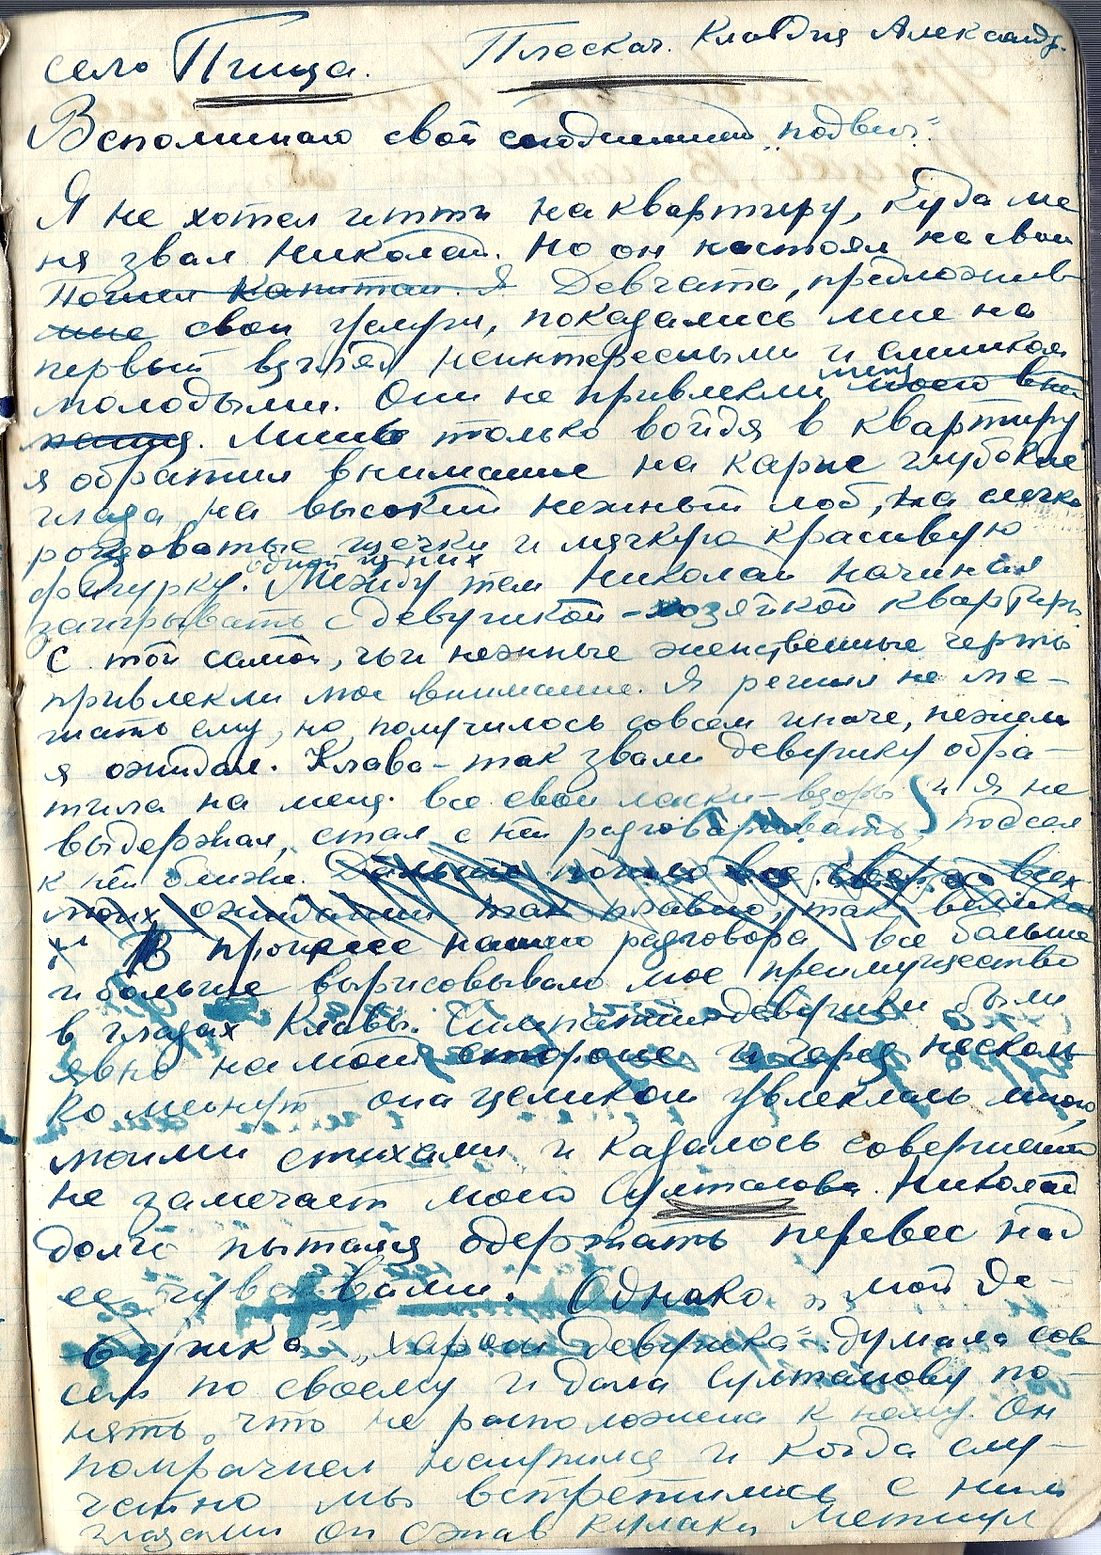 село Птица. Плескач. Клавдия Александр.
Вспоминаю свой сегодняшний „подвиг“.
Я не хотел итти на квартиру, куда ме
ня звал Николай. Но он настоял на своем
Пошел капитан. Я Девчата, предложив
шие свои услуги, показались мне на
первый взгляд неинтересными и слишком
молодыми. Они не привлекли меня моего вни
мания. Лишь только войдя в квартиру
я обратил внимание на карие глубокие
глаза, на высокий нежный лоб, на слегка
розоватые щечки и мягкую красивую
фигурку одной из них. Между тем Николай начинал
заигрывать с девушкой – хозяйкой квартиры
с той самой, чьи нежные женственные черты
привлекли мое внимание. Я решил не ме-
шать ему, но получилось совсем иначе, нежели
я ожидал. Клава – так звали девушку обра-
тила на меня все свои ласки – взоры и я не
выдержал, стал с ней разговаривать, подсел
к ней ближе. Дальше пошло все сверх всех
моих ожиданий так плавно, так
В процессе нашего разговора все больше
и больше вырисовывало мое преимущество
в глазах Клавы. Симпатии девушки были
явно на моей стороне и через несколь
ко минут она целиком увлеклась мною,
моими стихами и казалось совершенно
не замечает моего Султанова. Николай
долго пытался одержать перевес над
ее чувствами. Однако „мой де-
вушка“ „харош девушка“ думала сов
сем по своему и дала Султанову по-
нять, что не расположена к нему. Он
помрачнел насупился и когда слу-
чайно мы встретились с ним
глазами он сжав кулаки метнул